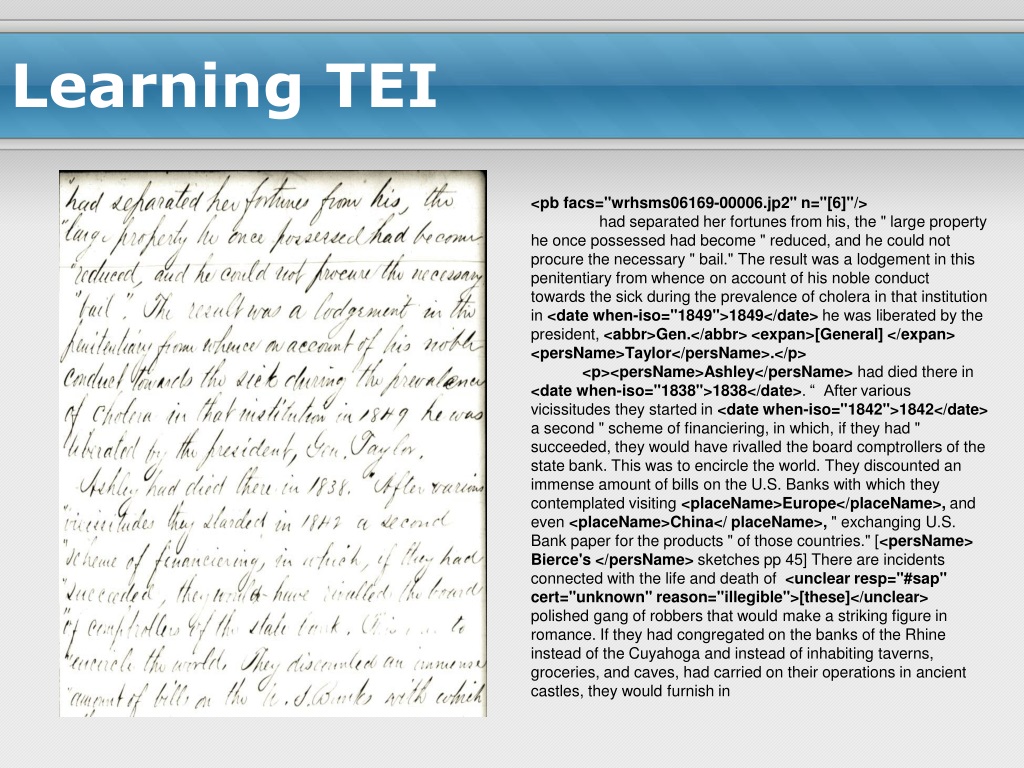 Learning TEI
"had separated her fortunes from his, the
"large property he once possessed had become
"reduced, and he could not procure the necessary
"bail". The result was a lodgement in the
penitentiary from whence on account of his noble
conduct towards the sick during the prevalence
of cholera in that institution in 1849 he was
liberated by the president, Gen. Taylor.
Ashley had died there in 1838. "After various
"vicissitudes they started in 1842 a second
"scheme of financiering, in which, if they had
"succeeded, they would have rivalled the board
"of comptrollers of the state bank. This, was to
"encircle the world. They discounted an immense
"amount of bills on the U.S. Banks with which
<pb facs="wrhsms06169-00006.jp2" n="[6]"/>
had separated her fortunes from his, the " large property
he once possessed had become " reduced, and he could not
procure the necessary " bail." The result was a lodgement in this
penitentiary from whence on account of his noble conduct
towards the sick during the prevalence of cholera in that institution
in <date when-iso="1849">1849</date> he was liberated by the
president, <abbr>Gen.</abbr> <expan>[General] </expan>
<persName>Taylor</persName>.</p>
<p><persName>Ashley</persName> had died there in
<date when-iso="1838">1838</date>. “ After various
vicissitudes they started in <date when-iso="1842">1842</date>
a second " scheme of financiering, in which, if they had "
succeeded, they would have rivalled the board comptrollers of the
state bank. This was to encircle the world. They discounted an
immense amount of bills on the U.S. Banks with which they
contemplated visiting <placeName>Europe</placeName>, and
even <placeName>China</ placeName>, " exchanging U.S.
Bank paper for the products " of those countries." [<persName>
Bierce's </persName> sketches pp 45] There are incidents
connected with the life and death of <unclear resp="#sap"
cert="unknown" reason="illegible">[these]</unclear>
polished gang of robbers that would make a striking figure in
romance. If they had congregated on the banks of the Rhine
instead of the Cuyahoga and instead of inhabiting taverns,
groceries, and caves, had carried on their operations in ancient
castles, they would furnish in